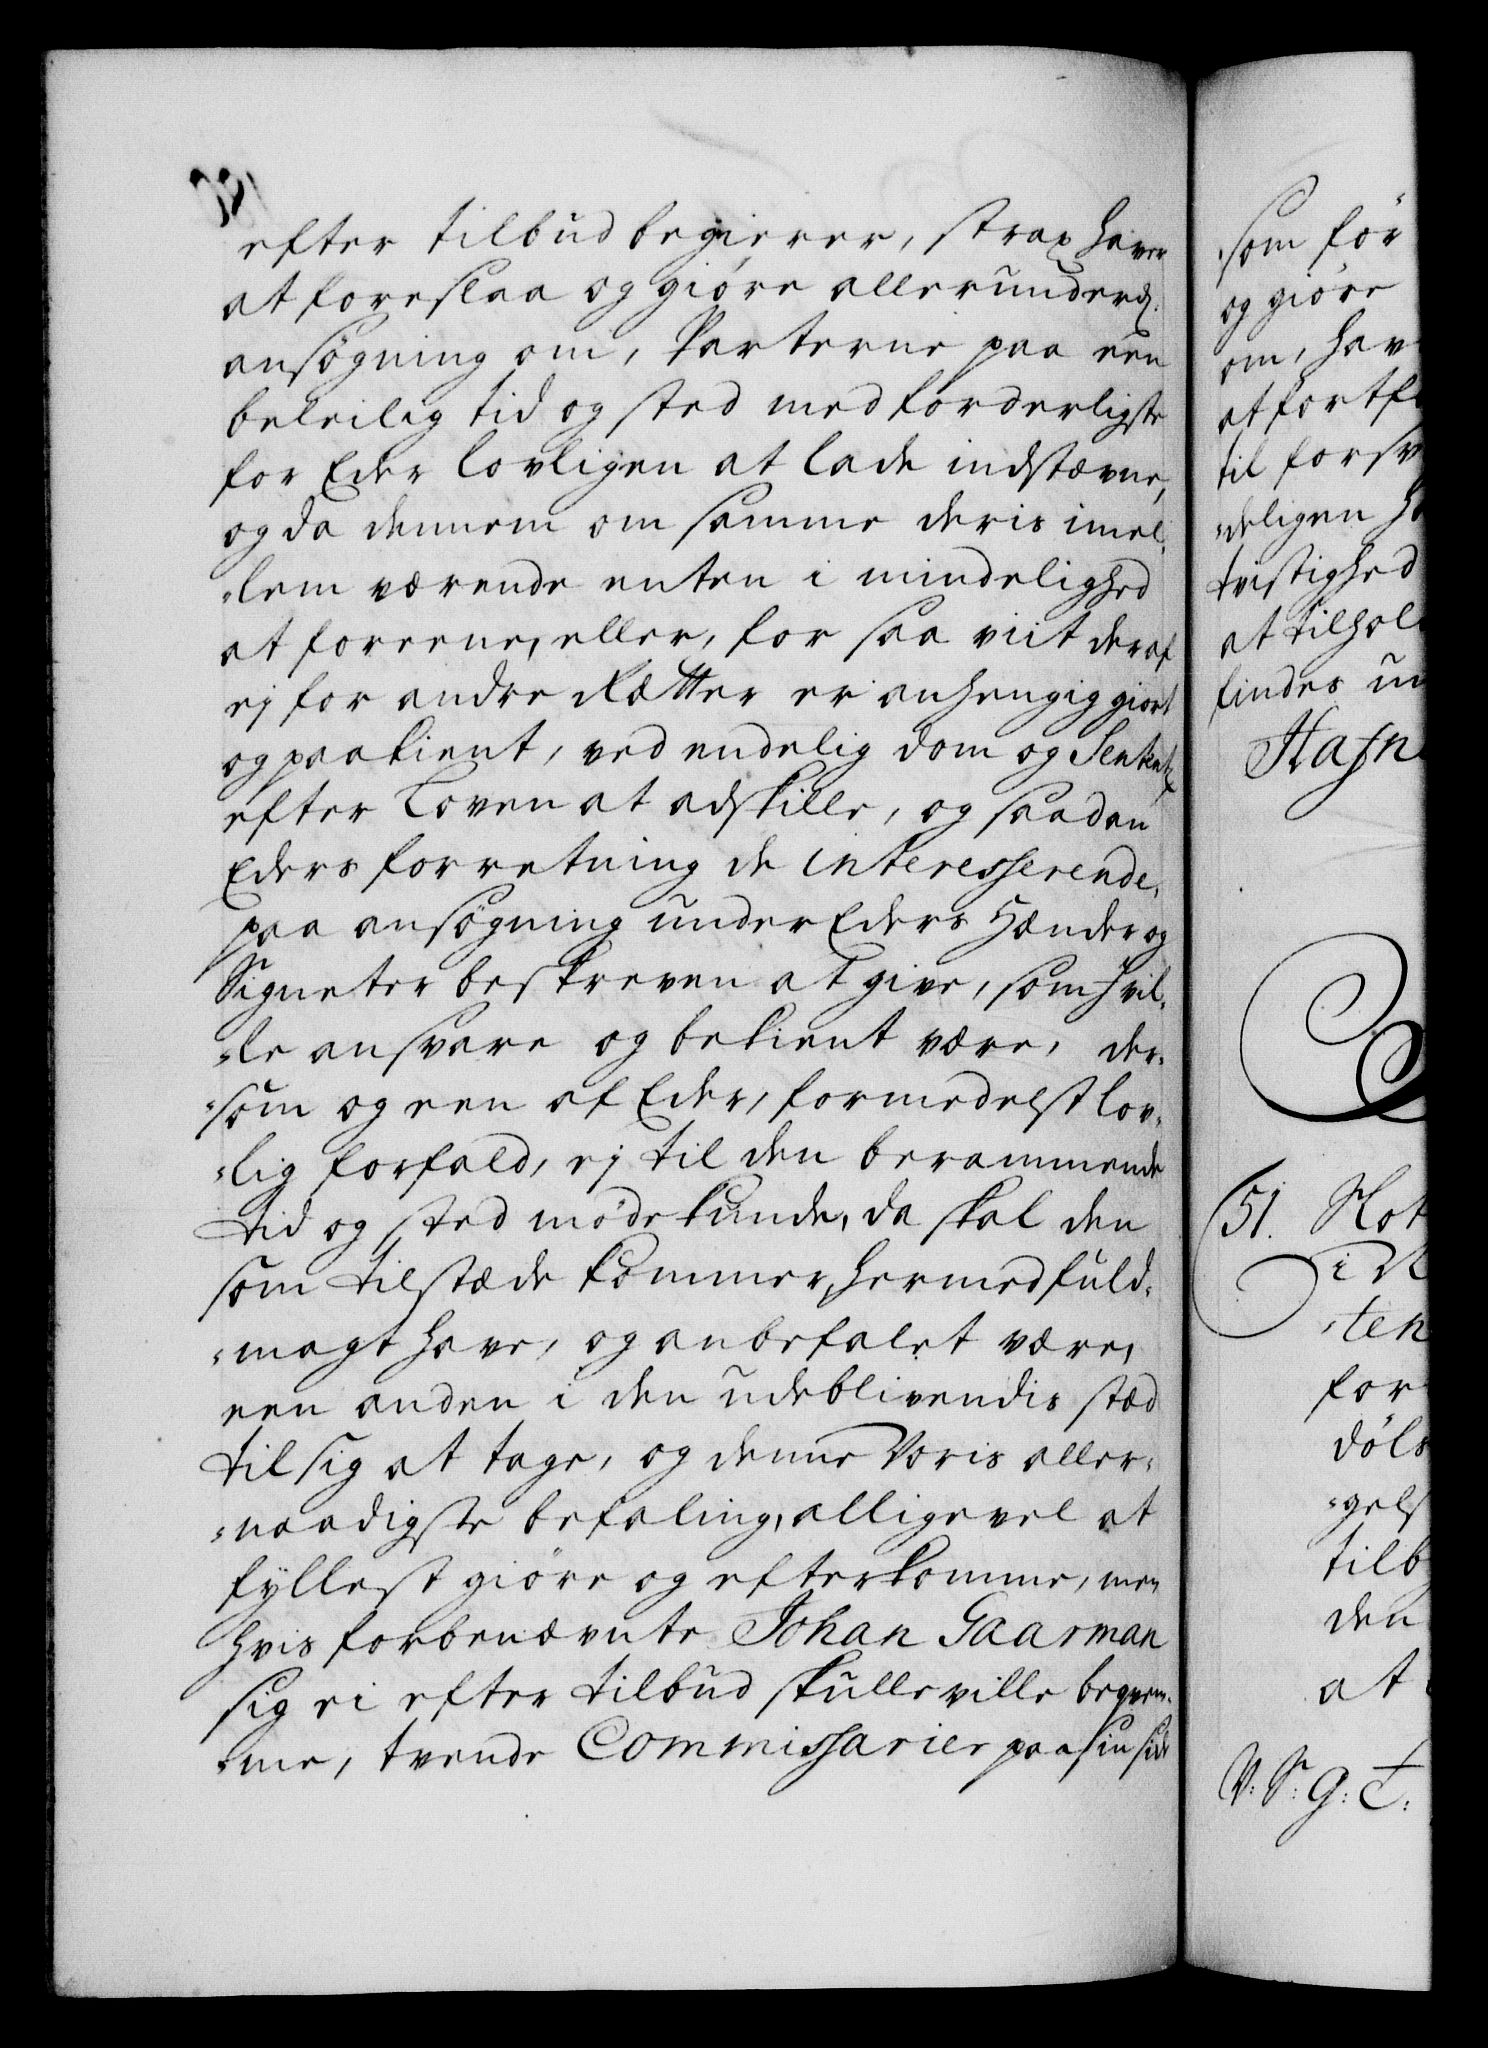 efter tilbud begierer, strax haver
at foreslaa og giöre allerunderd.
ansögning om, Parterne paa een
beleilig tid og sted med forderligste
for Eder lovligen at lade indstævne,
og da dennem om samme deris imel,,
,,lem værende enten i mindelighed
at foreene, eller, for saa viit deraf
ej for andre Rætter er anhengig giort
og paakient, ved endelig dom og Sententz
efter Loven at adskille, og saadan
Eders forretning de interesserende,
paa ansögning under Eders Hænder og
Signeter beskreven at give, som J vil,,
,,le ansvare og bekient være, der,,
,,som og een af Eder, formedelst lov,,
,,lig forfald, ej til den berammende
tid og sted möde kunde, da skal den
som tilstæde kommer, hermed fuld,,
,,magt have, og anbefalet være,
een anden i den udeblivendis stæd
til sig at tage, og denne Voris aller,,
,,naadigste befaling, alligevel at
fyllest giöre og efterkomme, men
hvis forbenævnte Johan Gaarman
sig ei efter tilbud skulle ville beqvem,,
,,me, tvende Commissarier paa sin side
som för
og giöre
om, hav
at fortf
til forsv
,,deligen
tvistighed
at tilhol
findes un
Hafn
51. Not
i R
,,ten
for
döls
,,gels
tilb
den
at
V: S: G: T: